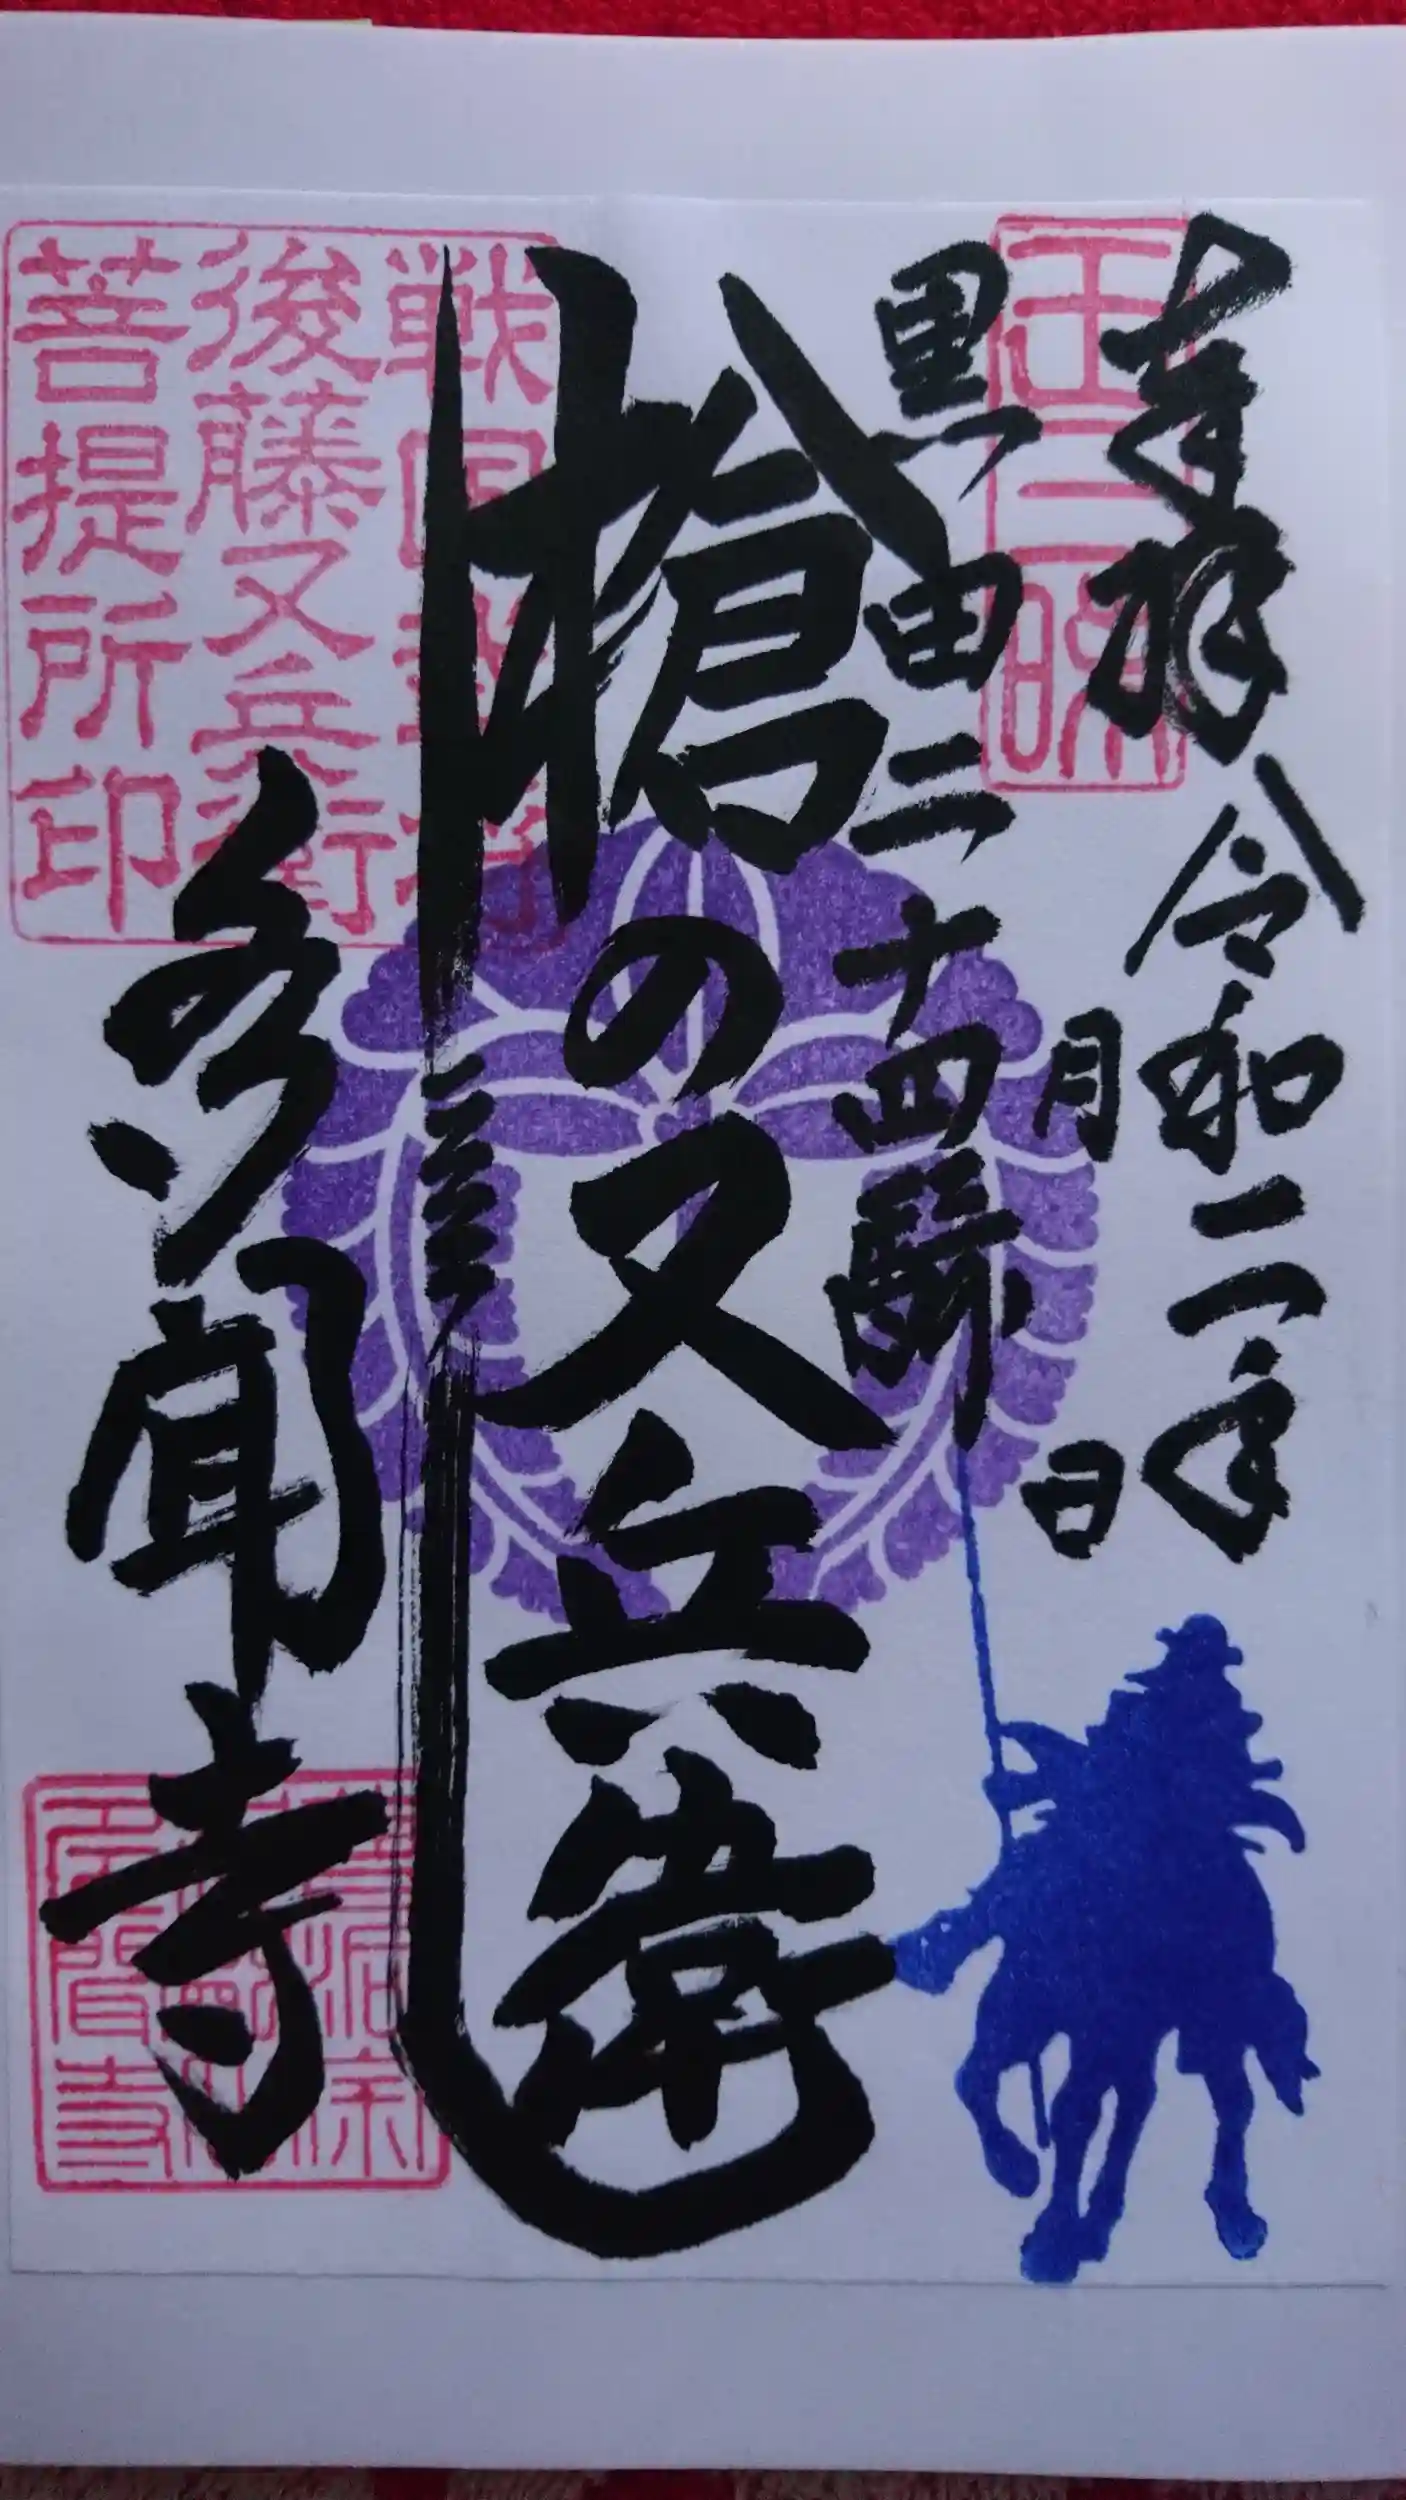 奉拝 令和二年
月 日
黒田二十四騎
槍の又兵衛
多聞寺
戦国武将
後藤又兵衛
菩提所印